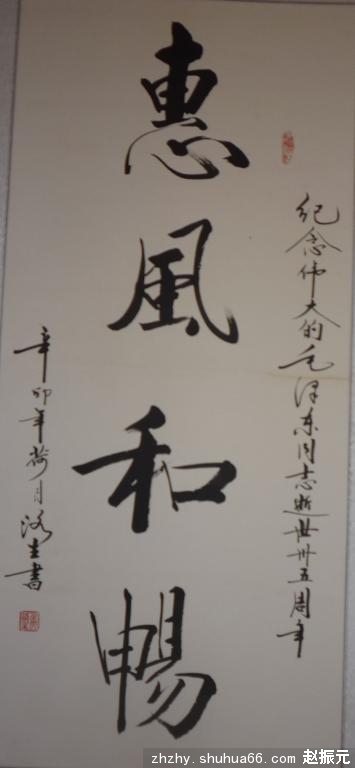 惠風和暢
纪念伟大的毛泽东同志逝世卅五周年
辛卯年荷月洛生書
zhzhy.shuhua66.com 赵振元